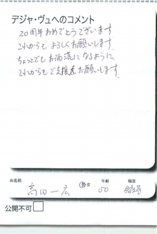 デジャ・ヴュへのコメント
20周年おめでとうございます
これからも よろしくお願いします。
ちょっとでもお役に立てるように、
これからもご支援をお願いします。
お名前
高田一広
年齢
50
職業
公開不可